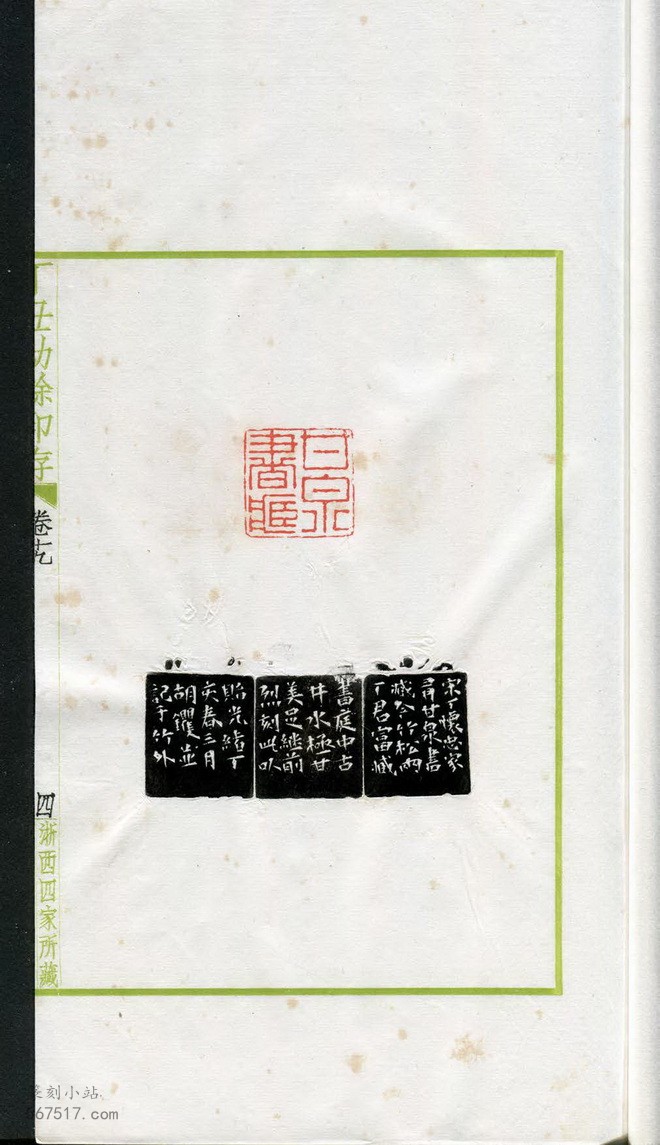 甘泉
書藏
宋丁懷忠家
尋甘泉書
藏今竹松兩
丁君富藏
書庭中古
井水極甘
美足繼前
烈刻此以
貽光緒丁
亥春三月
胡钁並
記于竹外
丁丑劫餘印存
卷十九
四
浙西四家所藏
篆刻小站
67517.com